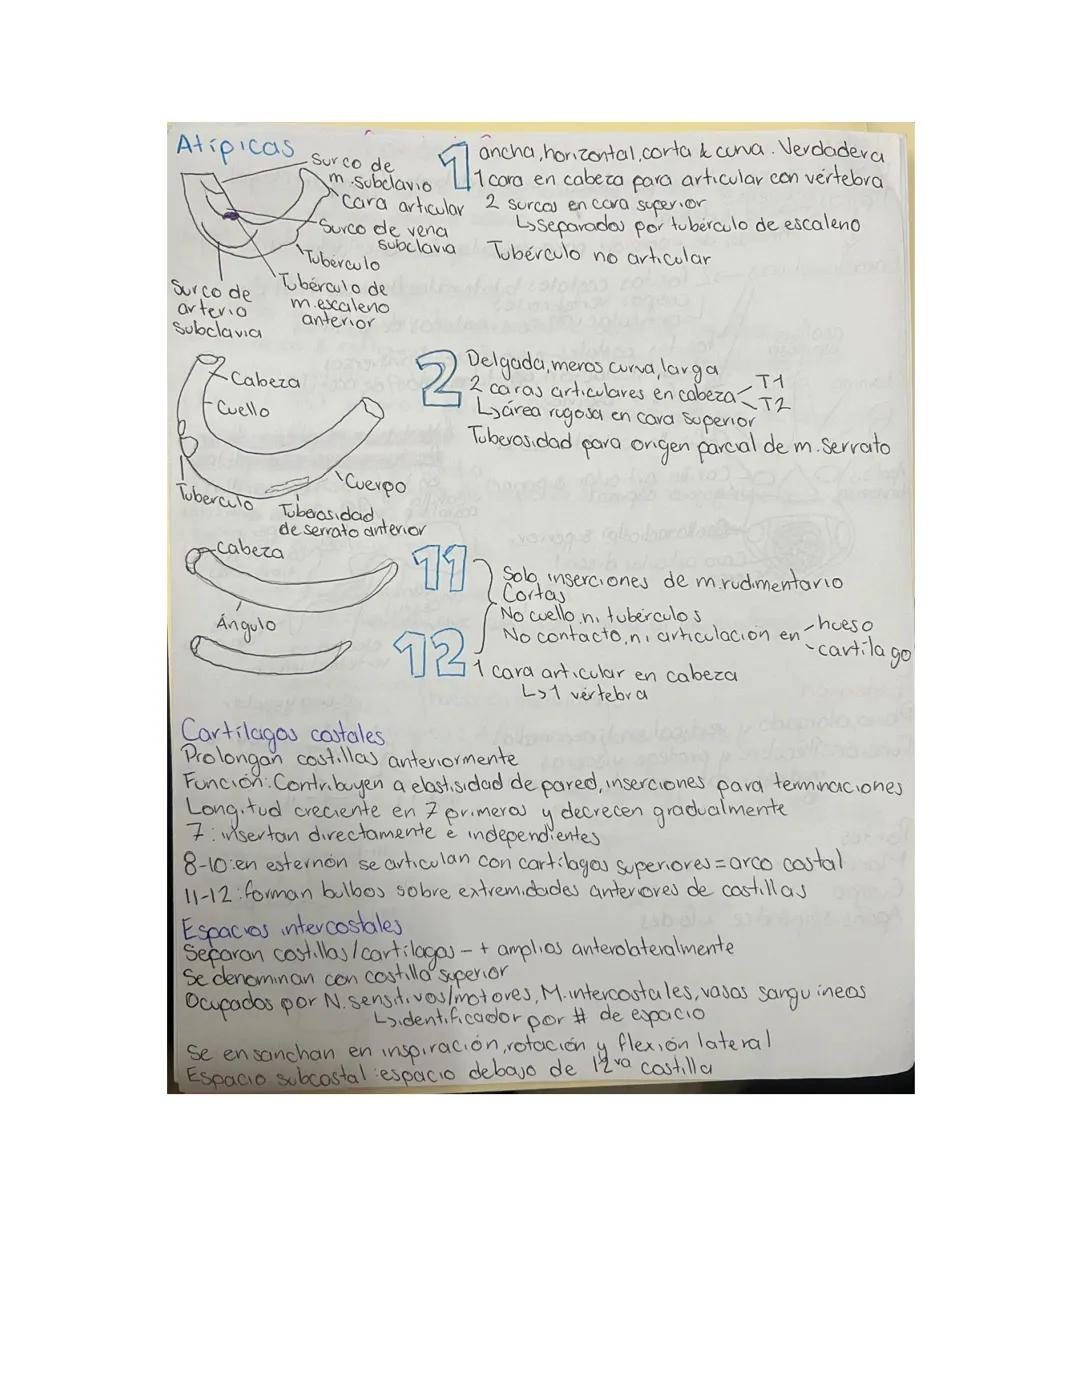 Atípicas
Surco de
m. subclavio
Cara articular
Surco de vena
subclavia
Tubérculo
Tubérculo de
m. escaleno
anterior
Surco de
arteria
subclavia
1 ancha, horizontal, corta & curva. Verdadera
1 cara en cabeza para articular con vértebra
2 surcos en cara superior
↳separados por tubérculo de escaleno
Tubérculo no articular
Cabeza
Cuello
Cuerpo
Tuberculo
Tuberosidad
de serrato anterior
2 Delgada, menos curva, larga
2 caras articulares en cabeza T1
T2
↳área rugosa en cara superior
Tuberosidad para origen parcial de m. serrato
Cabeza
Ángulo
11
12
Solo inserciones de m. rudimentario
Cortas
No cuello, ni tubérculos
No contacto, ni articulación en hueso
cartílago
1 cara articular en cabeza
↳1 vértebra
Cartílagos costales
Prolongan costillas anteriormente
Función: Contribuyen a elastisidad de pared, inserciones para terminaciones
Longitud creciente en 7 primeros y decrecen gradualmente
7: insertan directamente e independientes
8-10: en esternón se articulan con cartílagos superiores = arco costal
11-12: forman bulbos sobre extremidades anteriores de costillas
Espacios intercostales
Separan costillas/cartílagos - + amplios anterolateralmente
Se denominan con costilla superior
Ocupados por N. sensitivos/motores, M. intercostales, vasos sanguíneos
↳identificador por # de espacio
Se ensanchan en inspiración, rotación y flexión lateral
Espacio subcostal: espacio debajo de 12va costilla